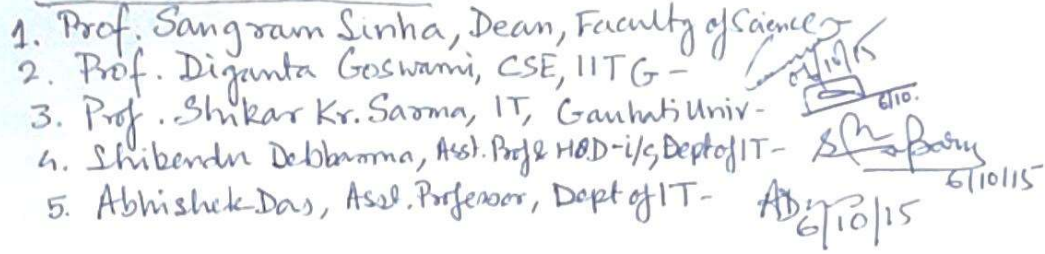 1. Prof. Sangram Sinha, Dean, Faculty of Science - 06/10/15
2. Prof. Diganta Goswami, CSE, IITG -
3. Prof. Shikar Kr. Sarma, IT, Gauhati Univ - 6/10.
4. Shibendu Debbarma, Asst. Prof & HOD-i/c, Dept of IT - 6/10/15
5. Abhishek Das, Asst. Professor, Dept of IT - AD 6/10/15